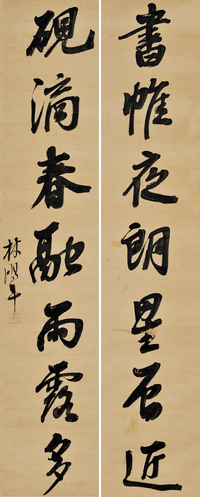 書帷夜朗星辰近
硯滴春融雨露多
林鴻年